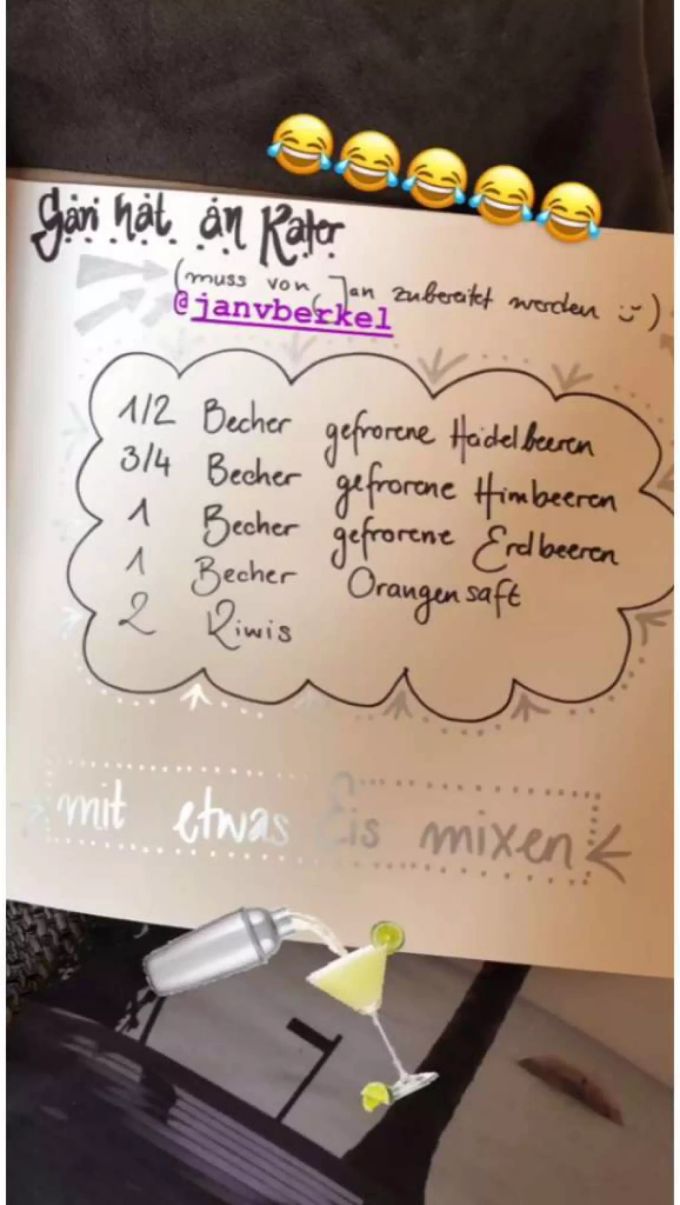 Gäri hät än Kater
(muss von Jan zubereitet werden :-)
@janvberkel
1/2 Becher gefrorene Heidelbeeren
3/4 Becher gefrorene Himbeeren
1 Becher gefrorene Erdbeeren
1 Becher Orangensaft
2 Kiwis
mit etwas Eis mixen